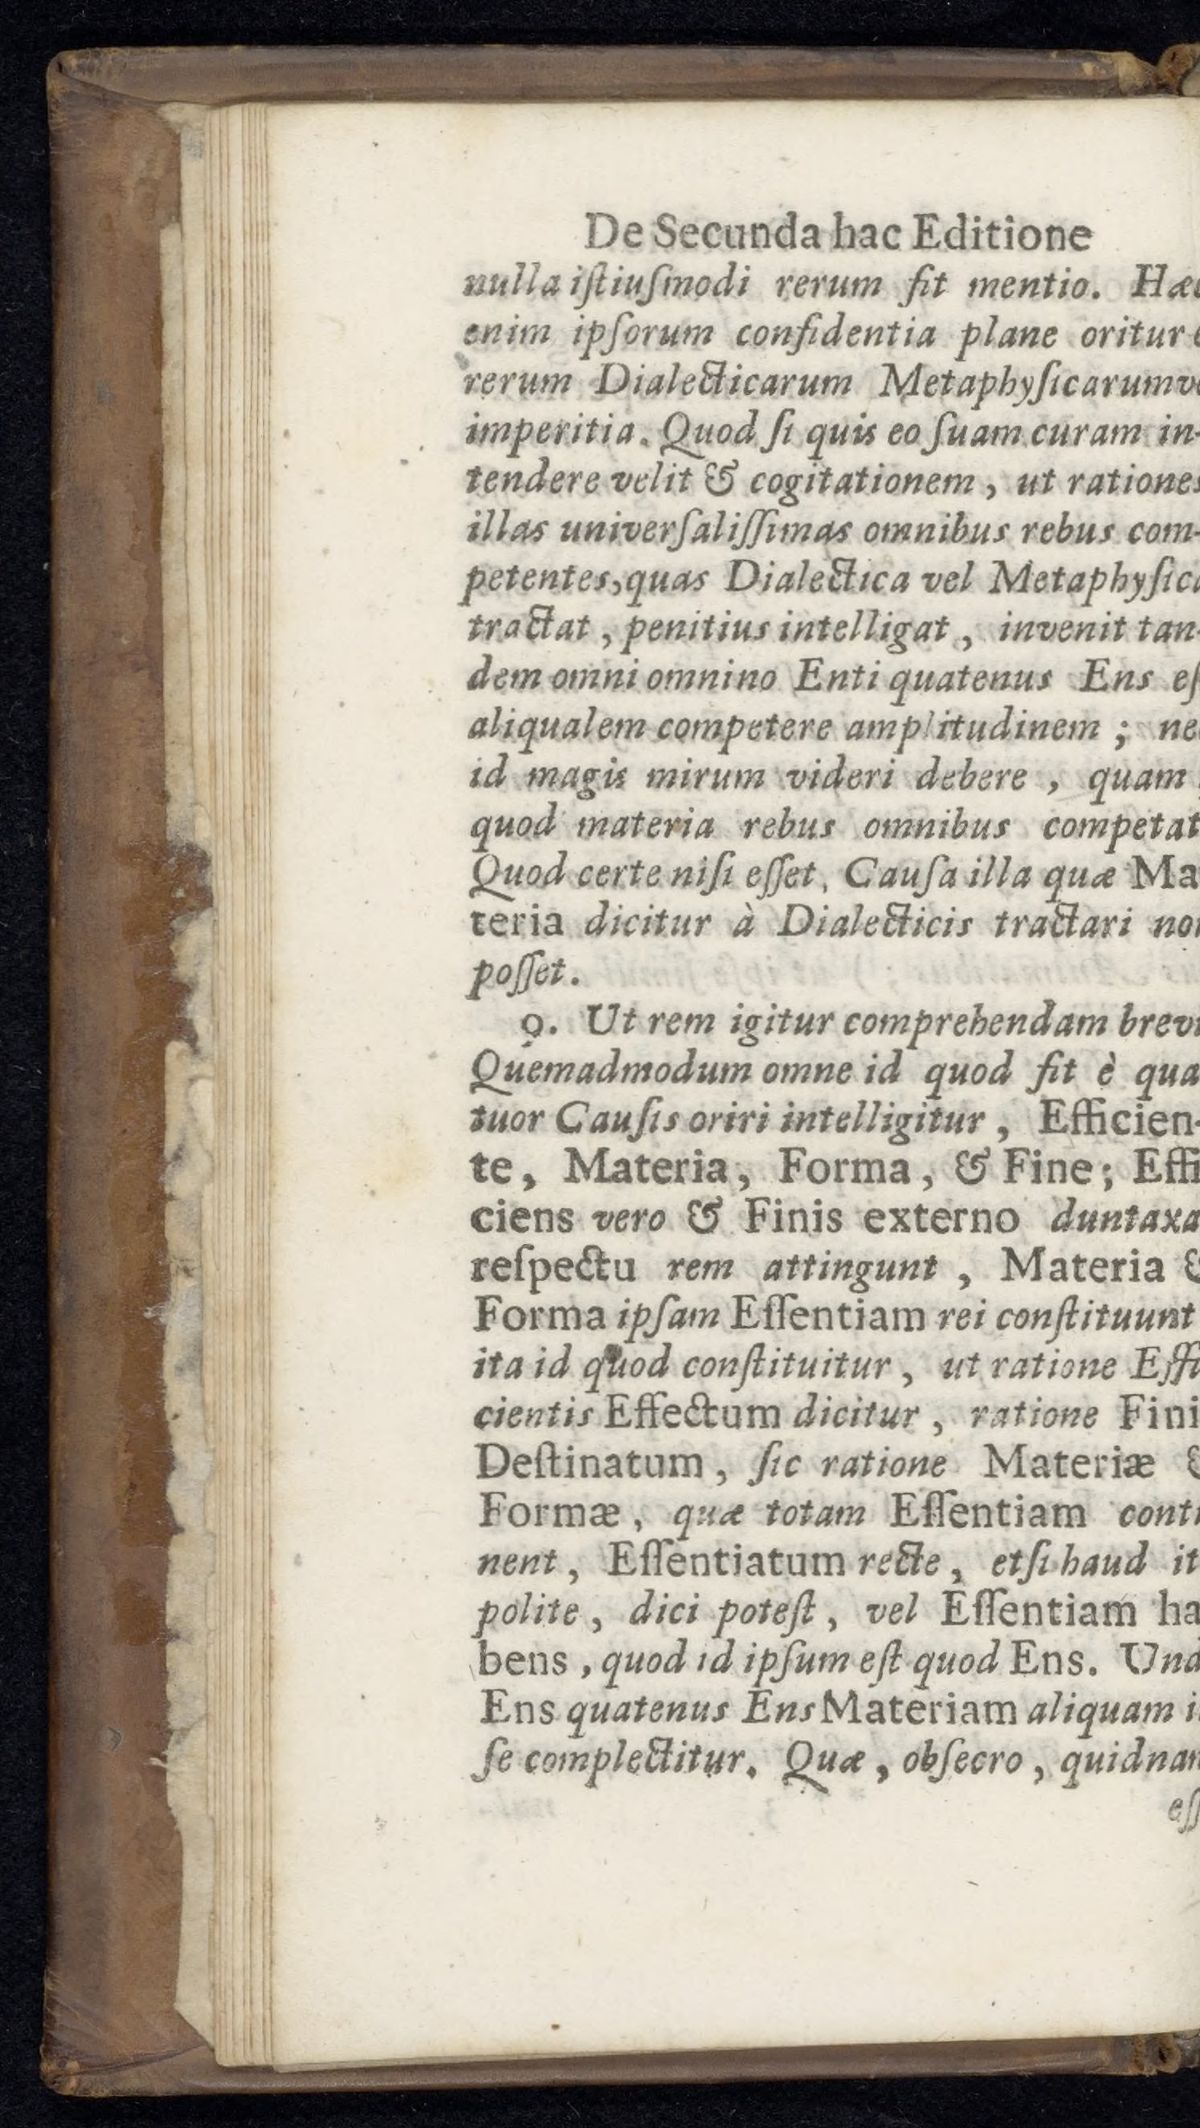 De Secunda hac Editione
nulla iſtiuſmodi rerum fit mentio. Hæc
enim ipſorum confidentia plane oritur
rerum Dialecticarum Metaphyſicarumve
imperitia. Quod ſi quis eo ſuam curam in-
tendere velit & cogitationem, ut rationes
illas univerſaliſſimas omnibus rebus com-
petentes, quas Dialectica vel Metaphyſica
tractat, penitius intelligat, invenit tan-
dem omni omnino Enti quatenus Ens eſ
aliqualem competere amplitudinem; nec
id magis mirum videri debere, quam
quod materia rebus omnibus competat
Quod certe niſi eſſet, Cauſa illa quæ Ma
teria dicitur à Dialecticis tractari non
poſſet.
9. Ut rem igitur comprehendam brevi
Quemadmodum omne id quod fit è qua
tuor Cauſis oriri intelligitur, Efficien-
te, Materia, Forma, & Fine; Effi
ciens vero & Finis externo duntaxa
reſpectu rem attingunt, Materia &
Forma ipſam Eſſentiam rei conſtituunt
ita id quod conſtituitur, ut ratione Effi
cientis Effectum dicitur, ratione Fini
Deſtinatum, ſic ratione Materiæ &
Formæ, quæ totam Eſſentiam conti
nent, Eſſentiatum recte, etſi haud it
polite, dici poteſt, vel Eſſentiam ha
bens, quod id ipſum eſt quod Ens. Und
Ens quatenus Ens Materiam aliquam i
ſe complectitur. Quæ, obſecro, quidnam
eſſ